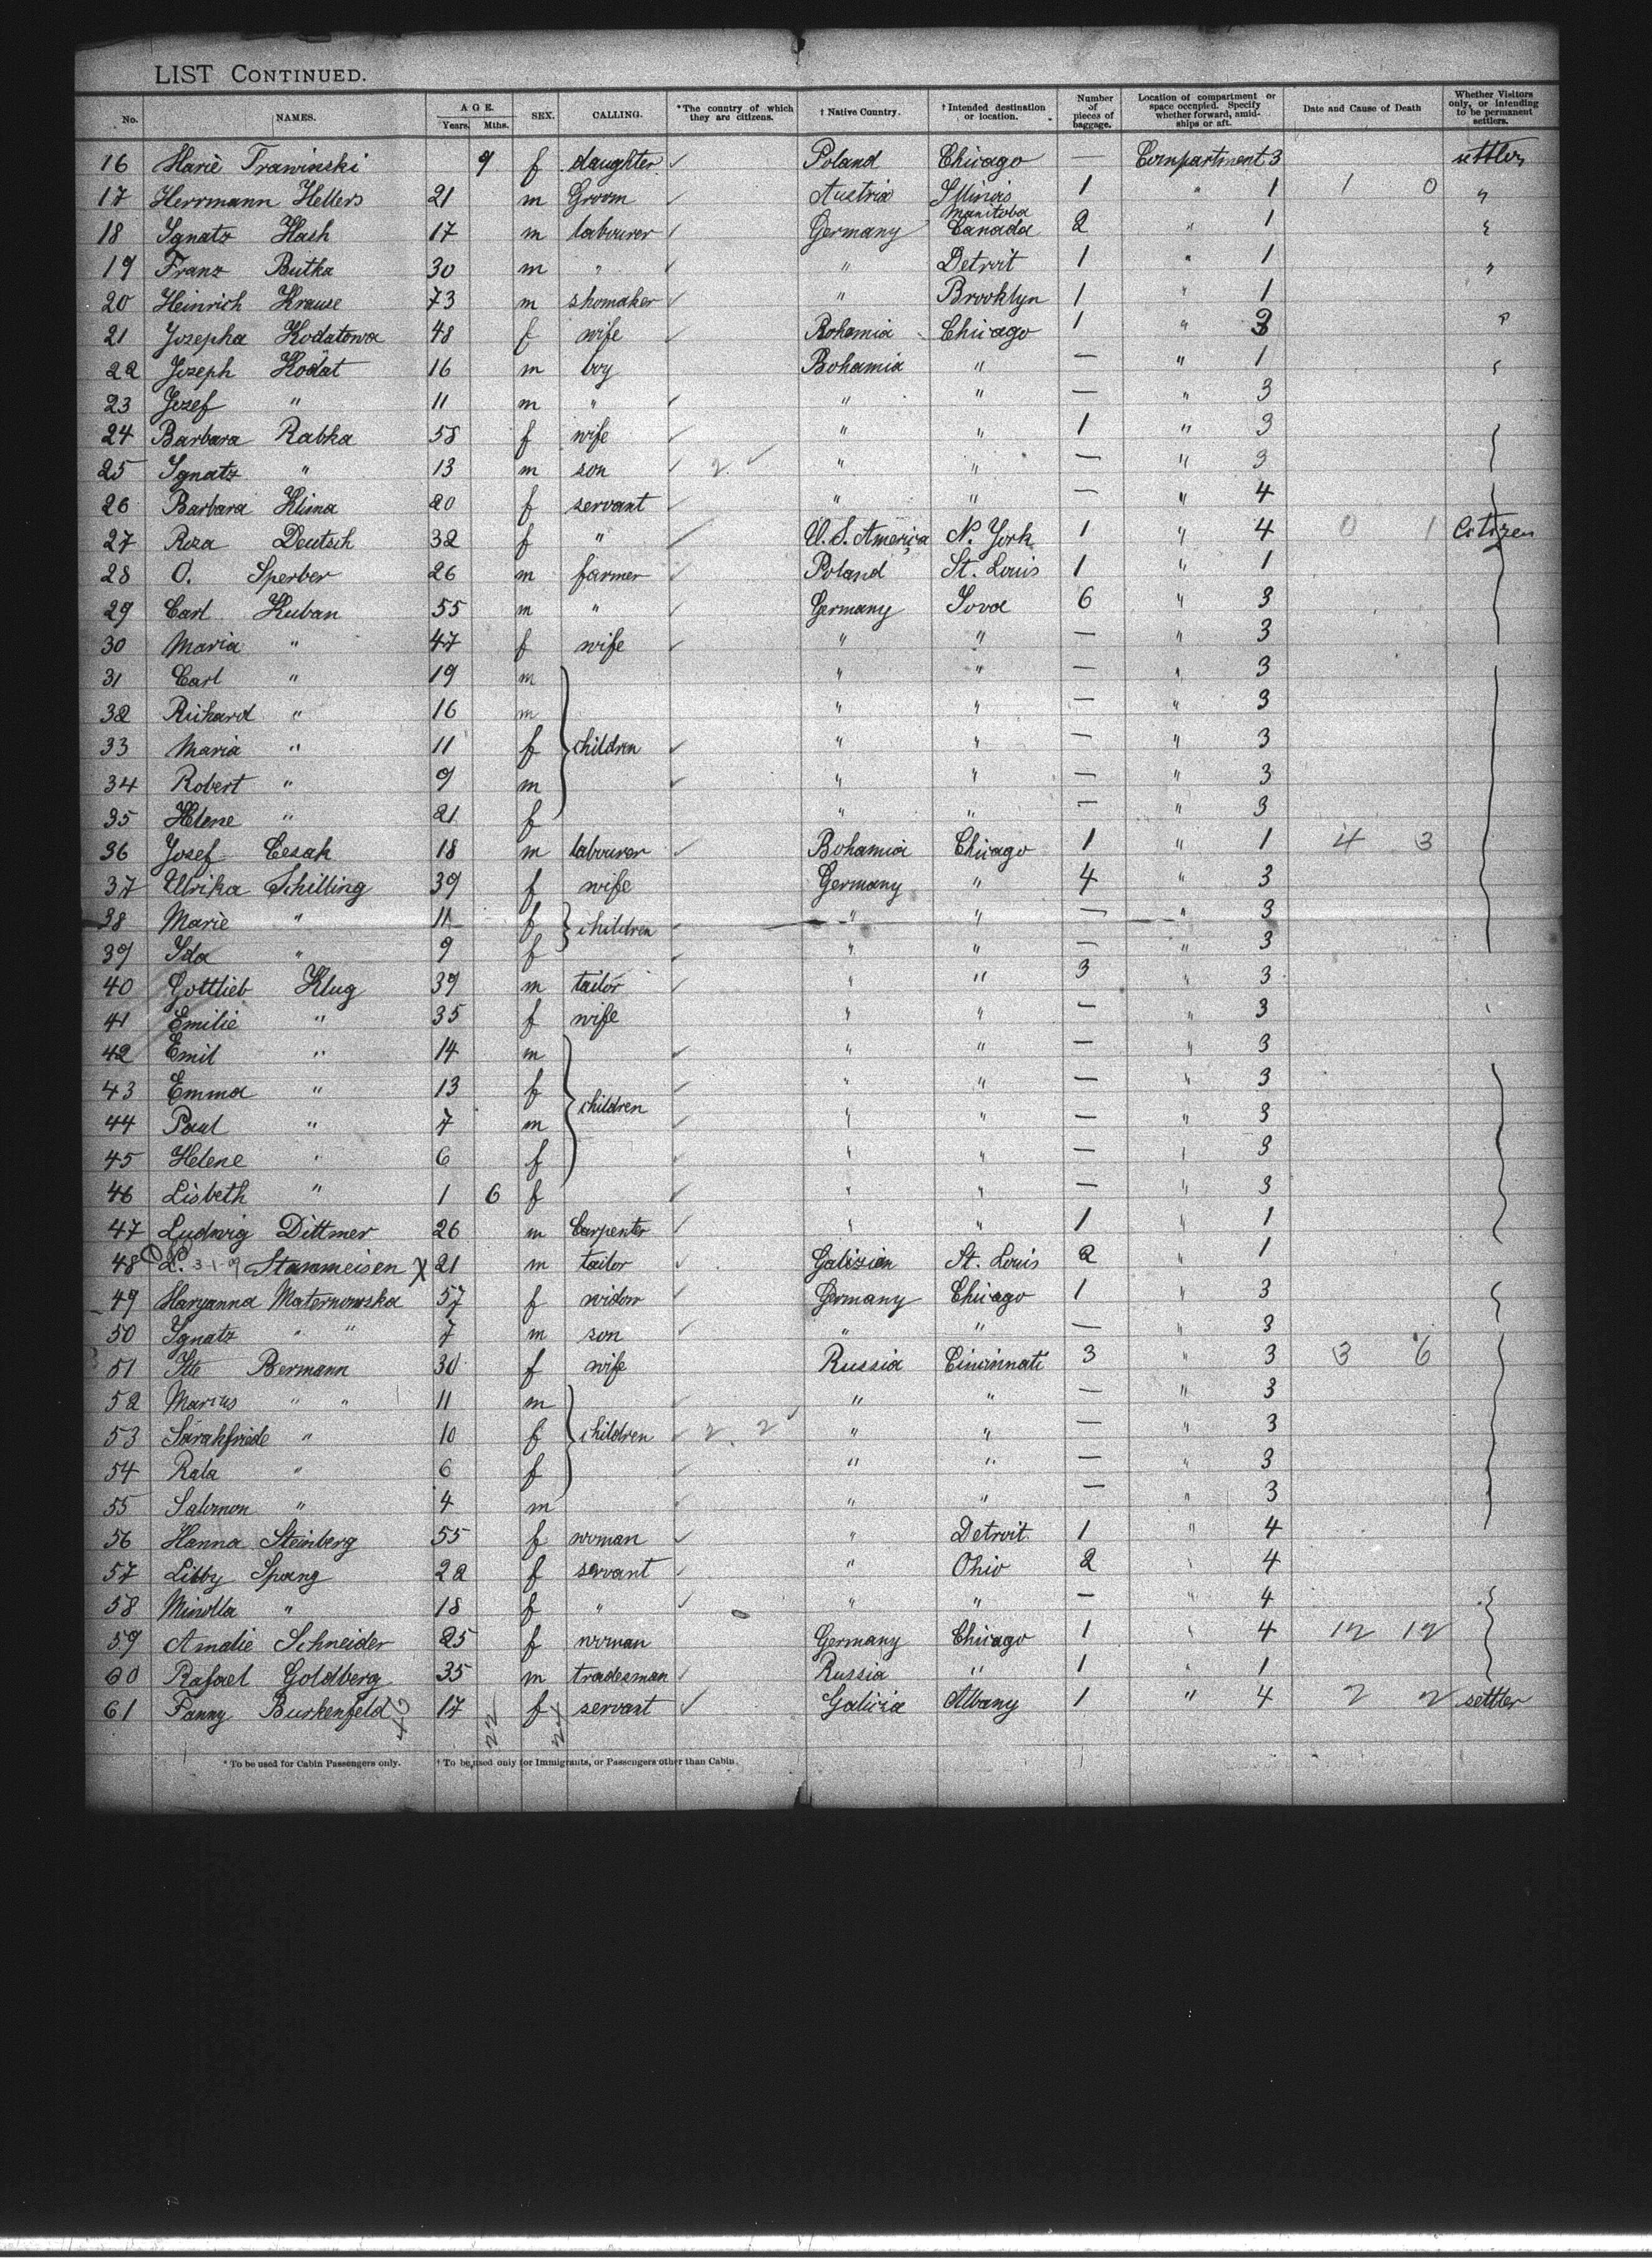 LIST CONTINUED.
No. NAMES. AGE. Years. Mths. SEX. CALLING. *The country of which they are citizens. † Native Country. † Intended destination or location. Number of pieces of baggage. Location of compartment or space occupied. Specify whether forward, amidships or aft. Date and Cause of Death Whether Visitors only, or intending to be permanent settlers.
16 Marie Trawinski 9 f daughter Poland Chicago — Compartment 3 settler
17 Herrmann Hellers 21 m Groom Austria Illinois 1 " 1 1 0 "
18 Ignatz Hash 17 m labourer Germany Manitoba Canada 2 " 1 "
19 Franz Butka 30 m " " Detroit 1 " 1 "
20 Heinrich Krause 73 m shomaker " Brooklyn 1 " 1
21 Jozepha Kodatowa 48 f wife Bohamia Chicago 1 " 3 "
22 Jozeph Kodat 16 m boy Bohamia " — " 1
23 Jozef " 11 m " " " — " 3
24 Barbara Rabka 58 f wife " " 1 " 3
25 Ignatz " 13 m son 2 " " — " 3
26 Barbara Klima 20 f servant " " — " 4
27 Roza Deutsch 32 f " U.S. America N. York 1 " 4 0 1 Citizen
28 O. Sperber 26 m farmer Poland St. Louis 1 " 1
29 Carl Kuban 55 m " Germany Iova 6 " 3
30 Maria " 47 f wife " " — " 3
31 Carl " 19 m " " — " 3
32 Richard " 16 m " " — " 3
33 Maria " 11 f children " " — " 3
34 Robert " 9 m " " — " 3
35 Helene " 21 f " " — " 3
36 Josef Cesak 18 m labourer Bohamia Chicago 1 " 1 4 3
37 Ulrika Schilling 39 f wife Germany " 4 " 3
38 Marie " 11 f children " " — " 3
39 Ida " 9 f " " — " 3
40 Gottlieb Klug 39 m tailor " " 3 " 3
41 Emilie " 35 f wife " " — " 3
42 Emil " 14 m " " — " 3
43 Emma " 13 f " " — " 3
44 Paul " 7 m children " " — " 3
45 Helene " 6 f " " — " 3
46 Lisbeth " 1 6 f " " — " 3
47 Ludwig Dittmer 26 m Carpenter " " 1 " 1
48 L. Stammeisen X 21 m tailor Galizien St. Louis 2 " 1
49 Maryanna Maternowska 57 f widow Germany Chicago 1 " 3
50 Ignatz " " 7 m son " " — " 3
51 Ite Bermann 30 f wife Russia Cincinnati 3 " 3 3 6
52 Marcus " " 11 m " " — " 3
53 Sarahfriede " 10 f children 2. 2 " " — " 3
54 Rala " 6 f " " — " 3
55 Salomon " 4 m " " — " 3
56 Hanna Steinberg 55 f woman " Detroit 1 " 4
57 Libby Spang 22 f servant " Ohio 2 " 4
58 Minolla " 18 f " " " — " 4
59 Amalie Schneider 25 f woman Germany Chicago 1 " 4 12 12
60 Rafael Goldberg 35 m tradesman Russia " 1 " 1
61 Fanny Burkenfeld 17 f servant Galicia Albany 1 " 4 2 2 settler
22 24
* To be used for Cabin Passengers only. † To be used only for Immigrants, or Passengers other than Cabin.